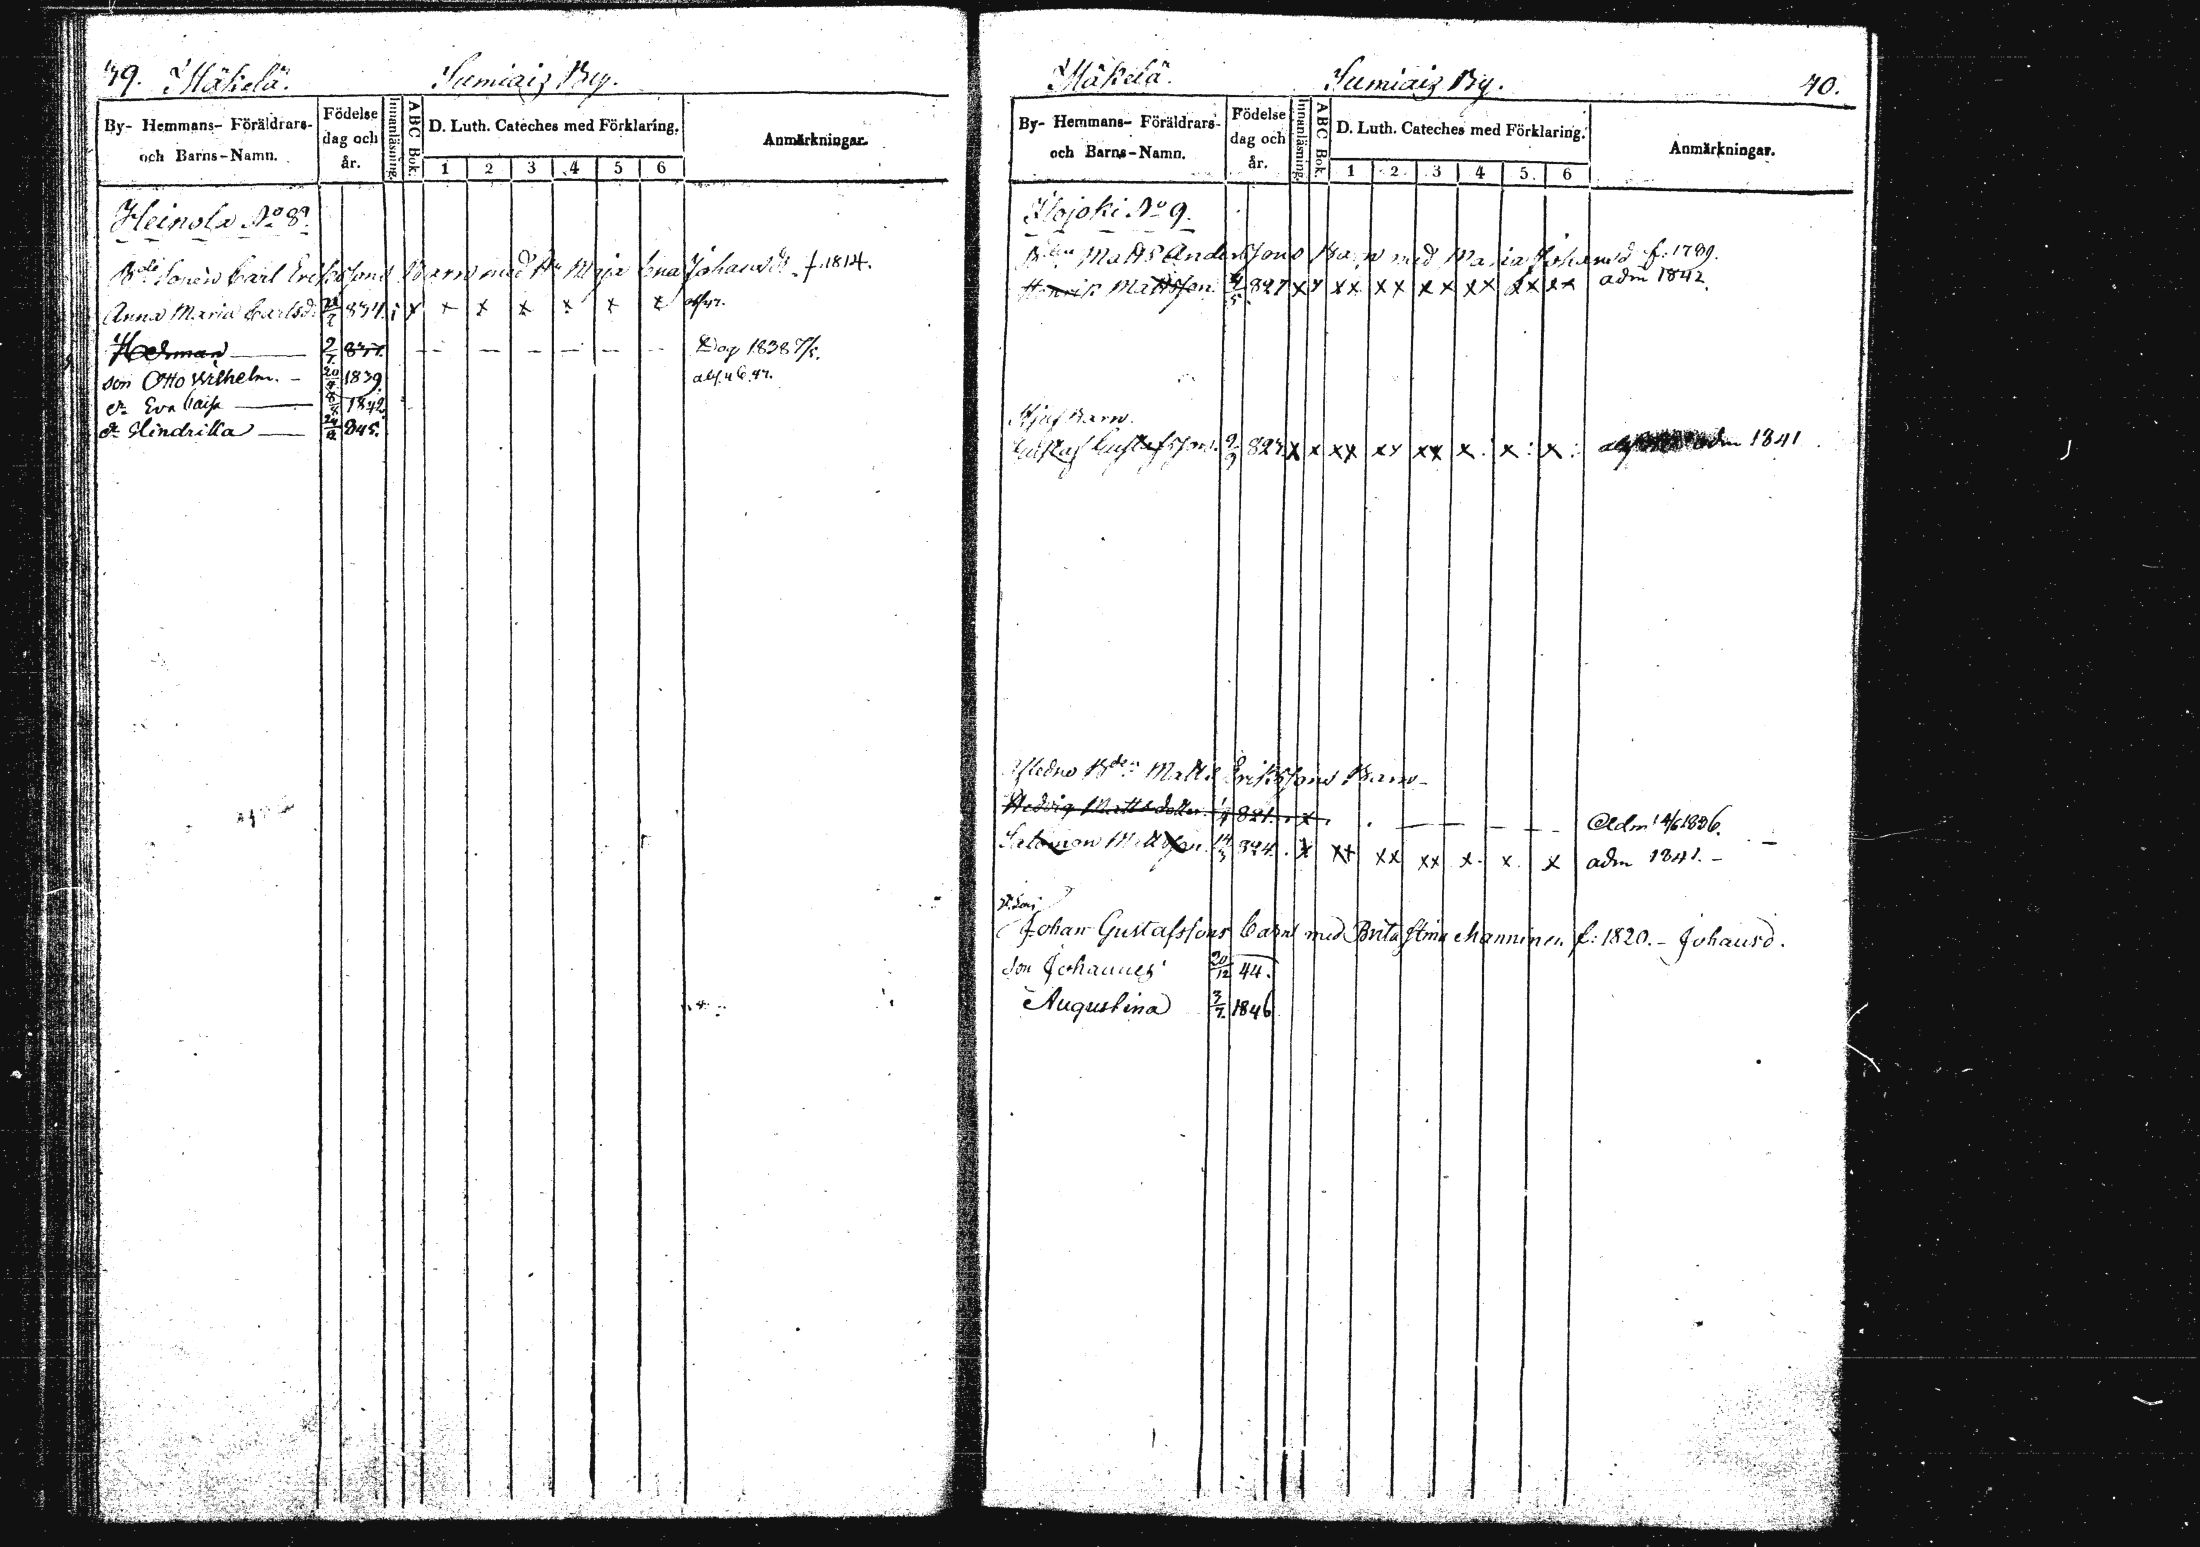 39. Mäkelä. Sumiais By.
By- Hemmans- Föräldrars- och Barns-Namn.
Födelse dag och år.
Innanläsning.
ABC Bok.
D. Luth. Cateches med Förklaring.
1 2 3 4 5 6
Anmärkningar.
Heinola No 8.
Bde Sonen Carl Erikssons Barn med Hu Maja Lena Johansd. f. 1814.
Anna Maria Carlsd. 834. x x x x x x
Herman 2/7 837. — — — — — — Dog 1838 7/5.
son Otto Wilhelm. - 20/9 1839.
dr Eva Caisa 1842.
dr Hindrika 845.
Mäkelä. Sumiais By. 40.
By- Hemmans- Föräldrars- och Barns-Namn.
Födelse dag och år.
Innanläsning.
ABC Bok.
D. Luth. Cateches med Förklaring.
1 2 3 4 5 6
Anmärkningar.
Ilojoki No 9.
Bden Matts Anderssons Barn med Maria Johansd. f. 1789.
Henrik Mattsson 827 x x xx xx xx xx xx xx adm 1842.
Styf Barn.
Gustaf Gustafsson. 2/9 823 x x xx xx xx x. x: x: adm 1841
Afledne Bden Matts Erikssons Barn-
Hedvig Mattsdotter. 821. x. — — — — Adm 14/6 1836.
Salomon Mattsson. 14/3 824. x xx xx xx x. x. x adm 1841. -
Johan Gustafssons barn med Brita Stina Manninen f: 1820. - Johansd.
son Johannes 20/12 44.
Augustina 3/7. 1846